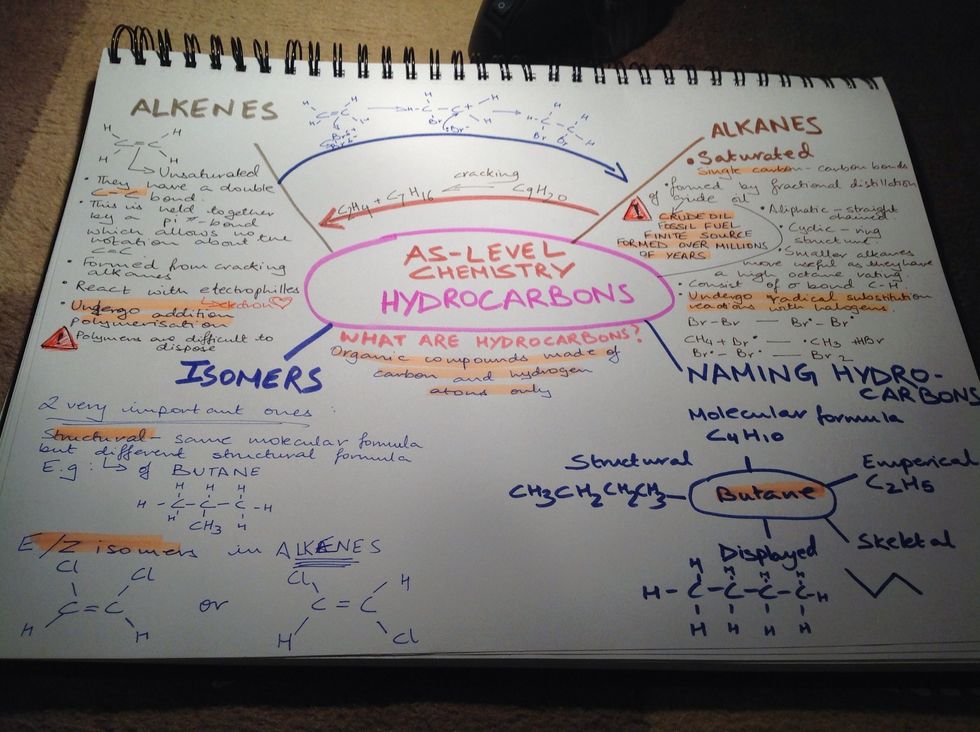 ALKENES
H
H
C=C
H
H
Unsaturated
• They have a double
C=C bond.
• This is held together
by a pi π-bond
which allows no
rotation about the
C=C
• Formed from cracking
alkanes
• React with electrophilles
• Undergo addition
polymerisation
! Polymers are difficult to
dispose
cracking
C2H4 + C7H16
C9H20
AS-LEVEL
CHEMISTRY
HYDROCARBONS
WHAT ARE HYDROCARBONS?
Organic compounds made of
carbon and hydrogen
atoms only
ALKANES
• Saturated
Single carbon-carbon bonds
• formed by fractional distillation
of crude oil
! CRUDE OIL
FOSSIL FUEL
FINITE SOURCE
FORMED OVER MILLIONS
OF YEARS
• Aliphatic - straight
chained
• Cyclic - ring
structure
• Smaller alkanes
more useful as they have
a high octane rating
• Consist of σ bond C-H
• Undergo radical substitution
reactions with halogens.
Br-Br — Br• Br•
CH4 + Br• — •CH3 + HBr
Br• - Br• — Br2
ISOMERS
2 very important ones:
Structural - same molecular formula
but different structural formula
E.g: of BUTANE
H H H
H - C - C - C - H
H CH3 H
E/Z isomers in ALKENES
Cl Cl
C=C
H H
or
Cl H
C=C
H Cl
NAMING HYDRO-
CARBONS
Molecular formula
C4H10
Structural
CH3CH2CH2CH3
Butane
Emperical
C2H5
Displayed
H H H H
H-C-C-C-C-H
H H H H
Skeletal